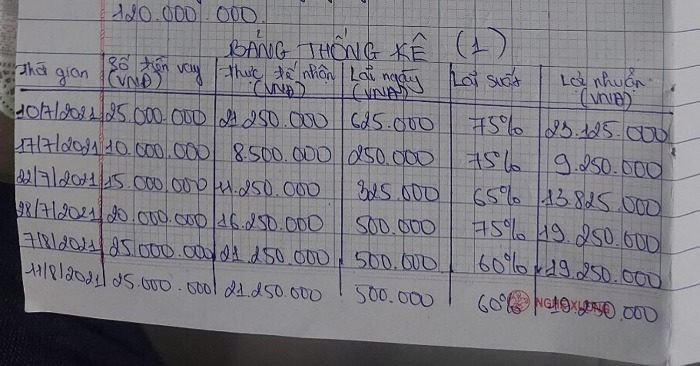 120.000.000.
BẢNG THỐNG KÊ (1)
Thời gian Số tiền vay (VNĐ) Thực tế nhận (VNĐ) Lãi ngày (VNĐ) Lãi suất Lợi nhuận (VNĐ)
10/7/2021 25.000.000 21.250.000 625.000 75% 23.125.000
17/7/2021 10.000.000 8.500.000 250.000 75% 9.250.000
22/7/2021 15.000.000 11.250.000 325.000 65% 13.825.000
28/7/2021 20.000.000 16.250.000 500.000 75% 19.250.000
7/8/2021 25.000.000 21.250.000 500.000 60% 19.250.000
11/8/2021 25.000.000 21.250.000 500.000 60% 19.250.000